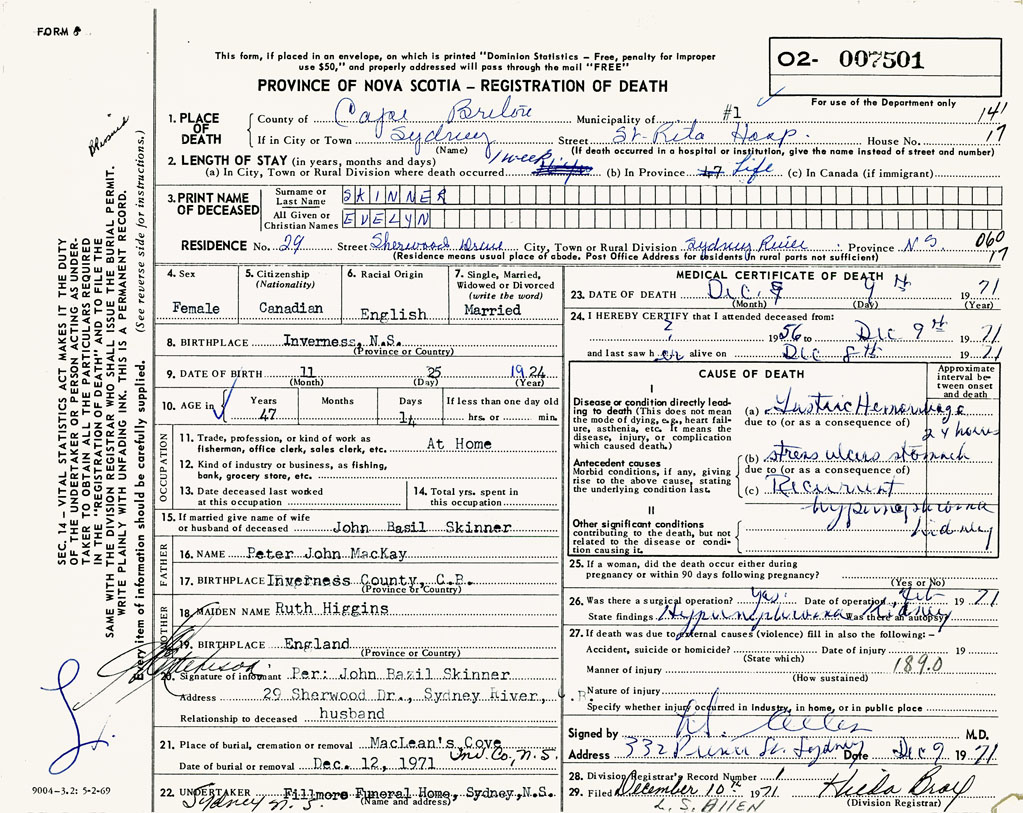 FORM 8
This form, if placed in an envelope, on which is printed "Dominion Statistics – Free, penalty for improper
use $50," and properly addressed will pass through the mail "FREE"
PROVINCE OF NOVA SCOTIA – REGISTRATION OF DEATH
O2- 007501
For use of the Department only
141
17
1. PLACE OF DEATH
County of Cape Breton Municipality of #1
If in City or Town Sydney Street St. Rita Hosp. House No.
(Name) (If death occurred in a hospital or institution, give the name instead of street and number)
2. LENGTH OF STAY (in years, months and days)
(a) In City, Town or Rural Division where death occurred 1 week (b) In Province Life (c) In Canada (if immigrant)
3. PRINT NAME OF DECEASED
Surname or Last Name SKINNER
All Given or Christian Names EVELYN
RESIDENCE No. 29 Street Sherwood Drive City, Town or Rural Division Sydney River Province N S 060
(Residence means usual place of abode. Post Office Address for residents in rural parts not sufficient) 17
4. Sex
Female
5. Citizenship
(Nationality)
Canadian
6. Racial Origin
English
7. Single, Married,
Widowed or Divorced
(write the word)
Married
8. BIRTHPLACE Inverness, N.S.
(Province or Country)
9. DATE OF BIRTH 11 25 1924
(Month) (Day) (Year)
10. AGE in Years Months Days If less than one day old
47 14 hrs. or min.
OCCUPATION
11. Trade, profession, or kind of work as
fisherman, office clerk, sales clerk, etc. At Home
12. Kind of industry or business, as fishing,
bank, grocery store, etc.
13. Date deceased last worked
at this occupation
14. Total yrs. spent in
this occupation
15. If married give name of wife
or husband of deceased John Basil Skinner
FATHER
16. NAME Peter John MacKay
17. BIRTHPLACE Inverness County, C.B.
(Province or Country)
MOTHER
18. MAIDEN NAME Ruth Higgins
19. BIRTHPLACE England
(Province or Country)
20. Signature of informant Per: John Bazil Skinner
Address 29 Sherwood Dr., Sydney River, C.B.
Relationship to deceased husband
21. Place of burial, cremation or removal MacLean's Cove
Inv. Co., N.S.
Date of burial or removal Dec. 12, 1971
22. UNDERTAKER Fillmore Funeral Home, Sydney, N.S.
Sydney N.S. (Name and address)
MEDICAL CERTIFICATE OF DEATH
23. DATE OF DEATH Dec. 9th 1971
(Month) (Day) (Year)
24. I HEREBY CERTIFY that I attended deceased from:
? 1956 to Dec 9th 1971
and last saw her alive on Dec 8th 1971
CAUSE OF DEATH
Approximate
interval be-
tween onset
and death
I
Disease or condition directly lead-
ing to death (This does not mean
the mode of dying, e.g., heart fail-
ure, asthenia, etc. It means the
disease, injury, or complication
which caused death.)
(a) Gastric Hemorrhage
due to (or as a consequence of) 24 hours
Antecedent causes
Morbid conditions, if any, giving
rise to the above cause, stating
the underlying condition last.
(b) stress ulcers stomach
due to (or as a consequence of)
(c) Recurrent
hypernephroma
kidney
II
Other significant conditions
contributing to the death, but not
related to the disease or condi-
tion causing it.
25. If a woman, did the death occur either during
pregnancy or within 90 days following pregnancy?
(Yes or No)
26. Was there a surgical operation? Yes. Date of operation Feb 1971
State findings Hypernephroma Kidney Was there an autopsy
27. If death was due to external causes (violence) fill in also the following: –
Accident, suicide or homicide? Date of injury 19
(State which)
Manner of injury 189.0
(How sustained)
Nature of injury
Specify whether injury occurred in industry, in home, or in public place
Signed by M.D.
Address 332 Prince St. Sydney Date Dec 9 1971
28. Division Registrar's Record Number 1
29. Filed December 10th 1971
(Division Registrar)
L. S. ALLEN
SEC. 14 – VITAL STATISTICS ACT MAKES IT THE DUTY
OF THE UNDERTAKER OR PERSON ACTING AS UNDER-
TAKER TO OBTAIN ALL THE PARTICULARS REQUIRED
IN THE "REGISTRATION OF DEATH" AND TO FILE THE
SAME WITH THE DIVISION REGISTRAR WHO SHALL ISSUE THE BURIAL PERMIT.
WRITE PLAINLY WITH UNFADING INK. THIS IS A PERMANENT RECORD.
Every item of information should be carefully supplied. (See reverse side for instructions.)
9004-3.2: 5-2-69